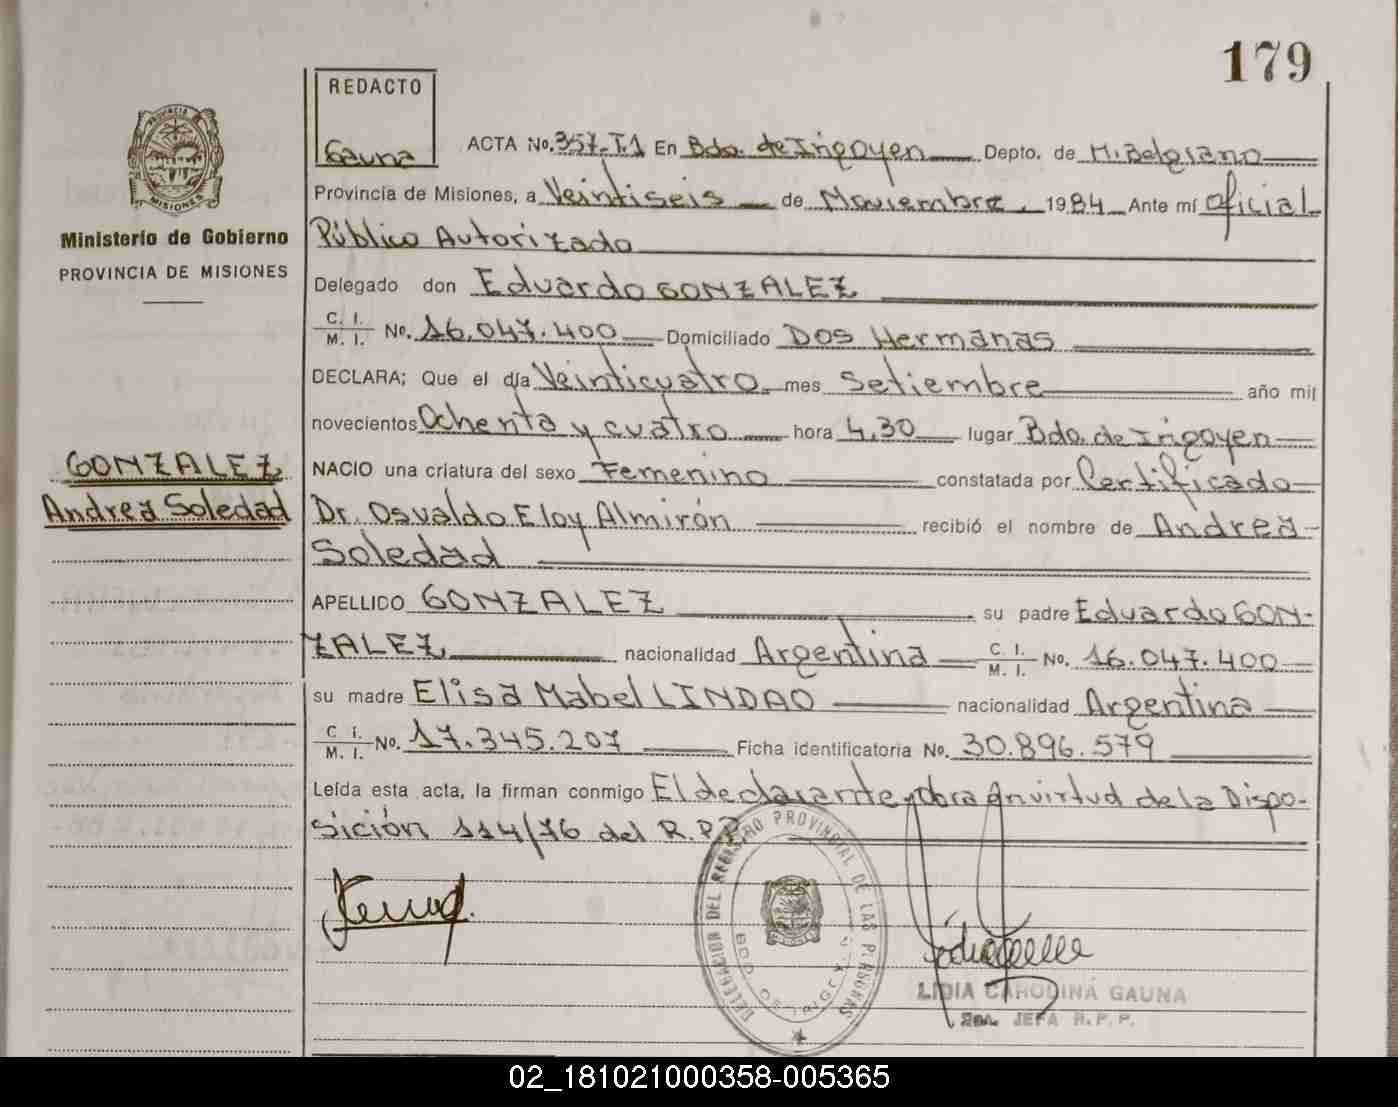 179
REDACTO
Gauna
ACTA No. 357-T.1 En Bdo. de Irigoyen Depto. de M. Belgrano
Provincia de Misiones, a Veintiseis de Noviembre 1984 Ante mí Oficial
Público Autorizado
Ministerio de Gobierno
PROVINCIA DE MISIONES
Delegado don Eduardo GONZALEZ
C. I. M. I. No. 16.047.400 Domiciliado Dos Hermanas
DECLARA; Que el día Veinticuatro mes Setiembre año mil
novecientos Ochenta y cuatro hora 4,30 lugar Bdo. de Irigoyen
GONZALEZ
Andrea Soledad
NACIO una criatura del sexo Femenino constatada por Certificado
Dr. Osvaldo Eloy Almirón recibió el nombre de Andrea
Soledad
APELLIDO GONZALEZ su padre Eduardo GON-
ZALEZ nacionalidad Argentina C. I. M. I. No. 16.047.400
su madre Elisa Mabel LINDAO nacionalidad Argentina
C. I. M. I. No. 17.345.207 Ficha identificatoria No. 30.896.579
Leída esta acta, la firman conmigo El declarante y obra en virtud de la Dispo-
sición 114/76 del R.P.P.
DELEGACION DEL REGISTRO PROVINCIAL DE LAS PERSONAS
BDO. DE IRIGOYEN
LIDIA CAROLINA GAUNA
JEFA R.P.P.
02_181021000358-005365